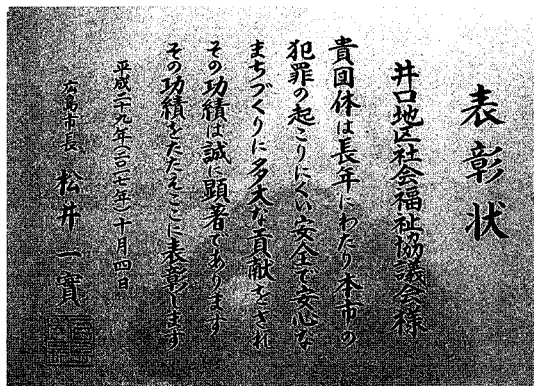 表彰状
井口地区社会福祉協議会様
貴団体は長年にわたり本市の
犯罪の起こりにくい安全で安心な
まちづくりに多大な貢献をされ
その功績は誠に顕著であります
その功績をたたえここに表彰します
平成二十九年(二〇一七年)十月四日
広島市長 松井一實